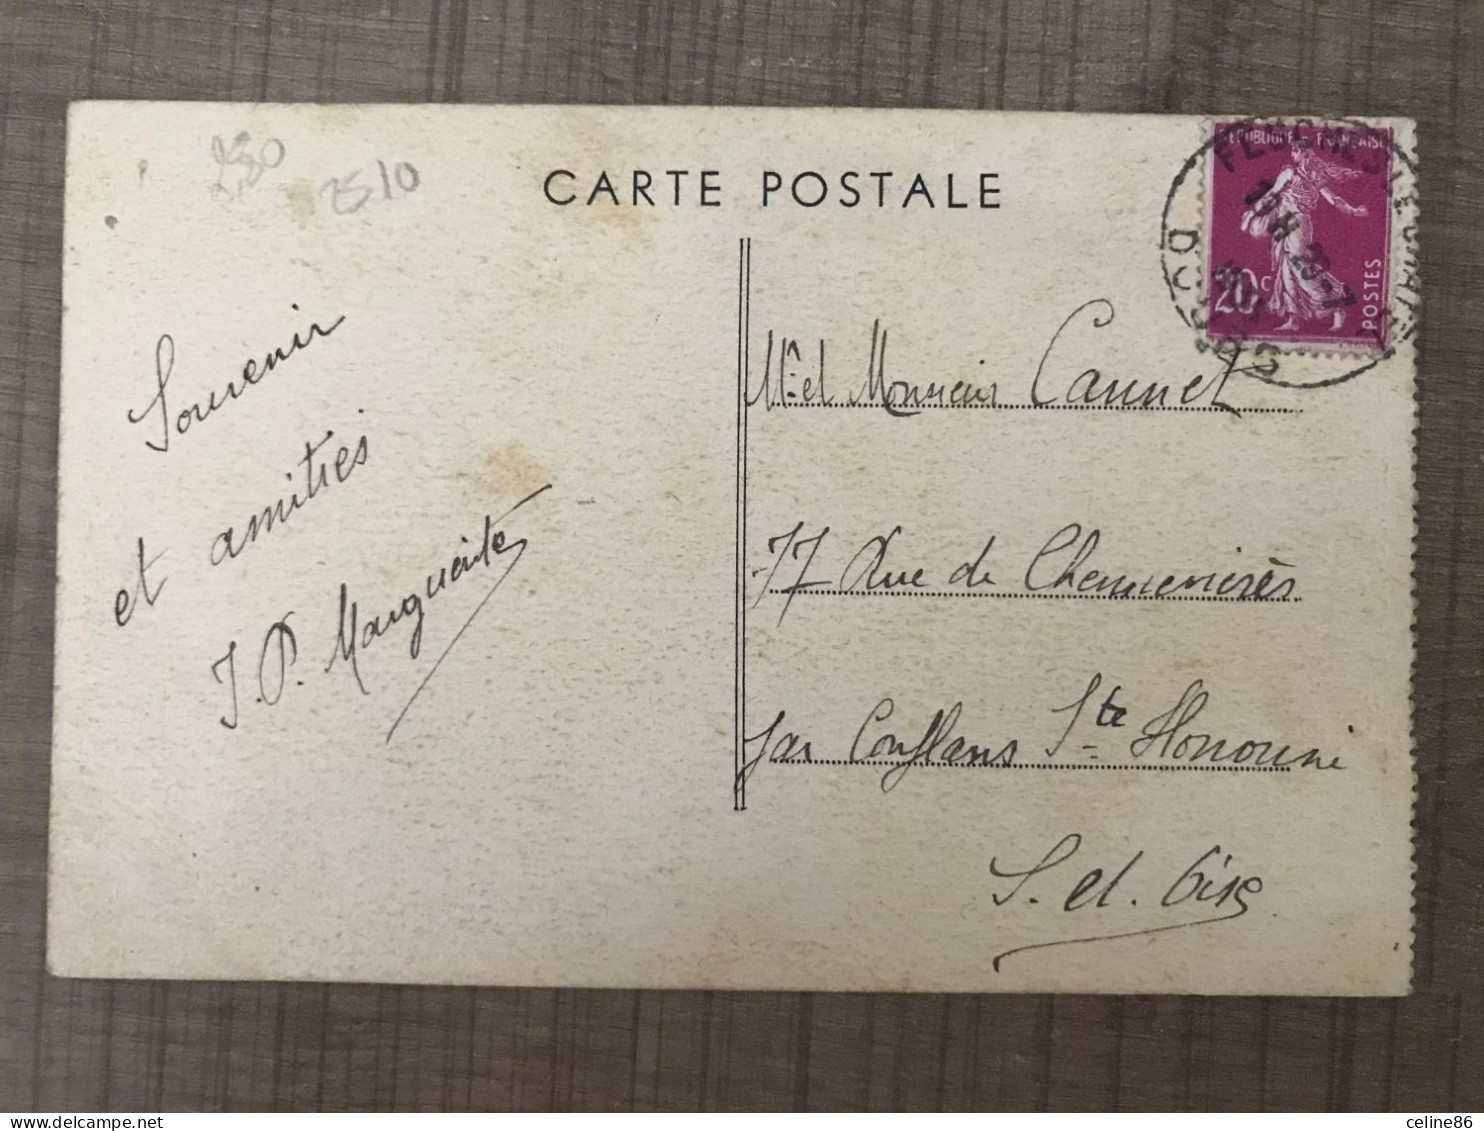 230
2510
CARTE POSTALE
REPUBLIQUE - FRANÇAISE
20c
POSTES
15H 29-7
DOUBS
Souvenir
et amitiés
J.P. Marguerite
Me et Monsieur Cannet
77 Rue de Chennevières
par Conflans Ste Honorine
S. et. Oise
delcampe.net
celine86